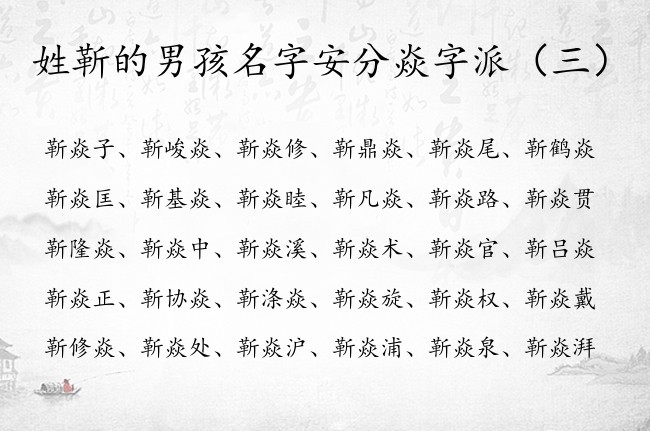 姓靳的男孩名字安分焱字派（三）
靳焱子、靳峻焱、靳焱修、靳鼎焱、靳焱尾、靳鹤焱
靳焱匡、靳基焱、靳焱睦、靳凡焱、靳焱路、靳焱贯
靳隆焱、靳焱中、靳焱溪、靳焱术、靳焱官、靳吕焱
靳焱正、靳协焱、靳涤焱、靳焱旋、靳焱权、靳焱戴
靳修焱、靳焱处、靳焱沪、靳焱浦、靳焱泉、靳焱湃